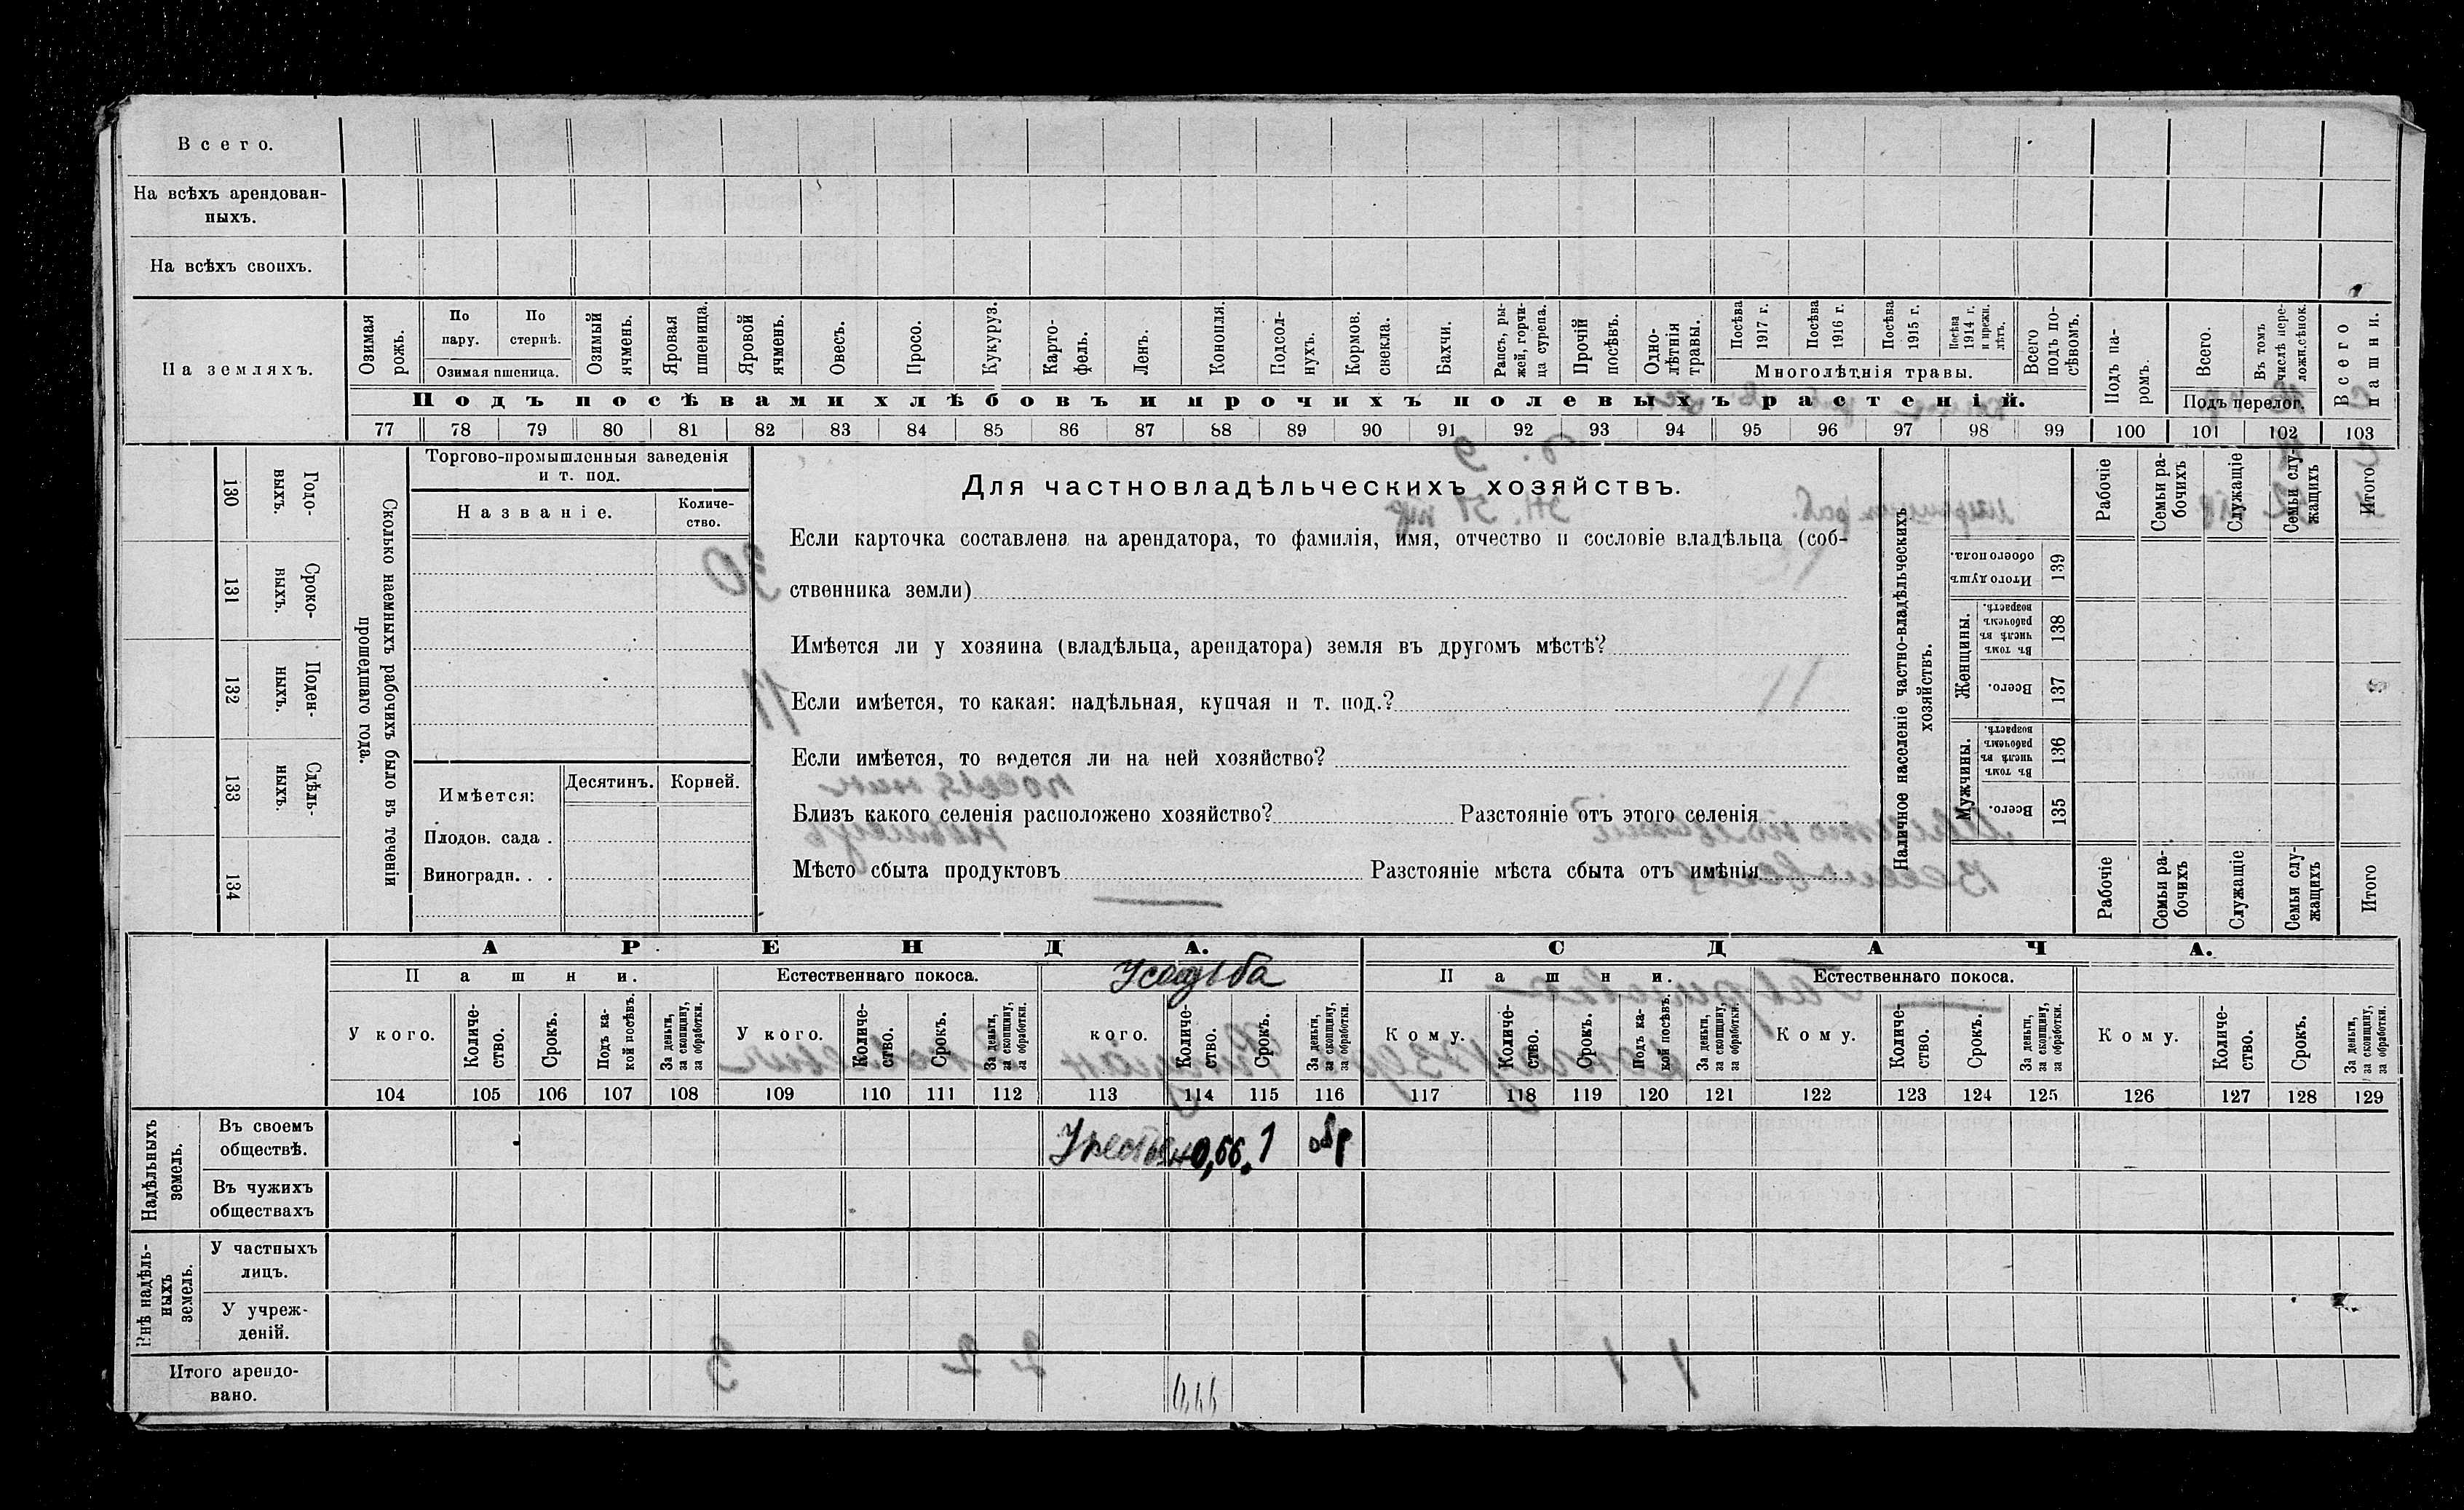 Всего.
На всѣхъ арендован-
ныхъ.
На всѣхъ своихъ.
На земляхъ.
Озимая рожь.
По пару.
По стернѣ.
Озимая пшеница.
Озимый ячмень.
Яровая пшеница.
Яровой ячмень.
Овесъ.
Просо.
Кукуруз.
Карто-
фель.
Ленъ.
Конопля.
Подсол-
нухъ.
Кормов. свекла.
Бахчи.
Рапсъ, ры-
жей, горчи-
ца сурепа.
Прочій посѣвъ.
Одно-
лѣтнія травы.
Посѣва 1917 г.
Посѣва 1916 г.
Посѣва 1915 г.
Посѣва 1914 г. и прежн. лѣтъ.
Многолѣтнія травы.
Всего подъ по-
сѣвомъ.
Подъ па-
ромъ.
Всего.
Въ томъ числѣ пере-
ложн. сѣнок.
Подъ перелог.
Всего пашни.
Подъ посѣвами хлѣбовъ и прочихъ полевыхъ растеній.
77 78 79 80 81 82 83 84 85 86 87 88 89 90 91 92 93 94 95 96 97 98 99 100 101 102 103
130 Годо-
выхъ.
131 Сроко-
выхъ.
132 Поден-
ныхъ.
133 Сдѣль-
ныхъ.
134
Сколько наемныхъ рабочихъ было въ теченіи
прошедшаго года.
Торгово-промышленныя заведенія
и т. под.
Названіе.
Количе-
ство.
Имѣется:
Десятинъ.
Корней.
Плодов. сада .
Виноградн. . .
Для частновладѣльческихъ хозяйствъ.
Если карточка составлена на арендатора, то фамилія, имя, отчество и сословіе владѣльца (соб-
ственника земли)
Имѣется ли у хозяина (владѣльца, арендатора) земля въ другомъ мѣстѣ?
Если имѣется, то какая: надѣльная, купчая и т. под.?
Если имѣется, то ведется ли на ней хозяйство?
Близъ какого селенія расположено хозяйство? Разстояніе отъ этого селенія
Мѣсто сбыта продуктовъ Разстояніе мѣста сбыта отъ имѣнія
Наличное населеніе частно-владѣльческихъ
хозяйствъ.
Рабочіе
Семьи ра-
бочихъ
Служащіе
Семьи слу-
жащихъ
Итого
Итого душъ обоего пола. 139
Женщины.
Въ томъ числѣ въ рабочемъ возрастѣ. 138
Всего. 137
Мужчины.
Въ томъ числѣ въ рабочемъ возрастѣ. 136
Всего. 135
Рабочіе
Семьи ра-
бочихъ
Служащіе
Семьи слу-
жащихъ
Итого
АРЕНДА.
СДАЧА.
Пашни.
Естественнаго покоса.
Усадьба
Пашни.
Естественнаго покоса.
У кого.
Количе-
ство.
Срокъ.
Подъ ка-
кой посѣвъ.
За деньги, за скопщину, за обработки.
У кого.
Количе-
ство.
Срокъ.
За деньги, за скопщину, за обработки.
кого.
Количе-
ство.
Срокъ.
За деньги, за скопщину, за обработки.
Кому.
Количе-
ство.
Срокъ.
Подъ ка-
кой посѣвъ.
За деньги, за скопщину, за обработки.
Кому.
Количе-
ство.
Срокъ.
За деньги, за скопщину, за обработки.
Кому.
Количе-
ство.
Срокъ.
За деньги, за скопщину, за обработки.
104 105 106 107 108 109 110 111 112 113 114 115 116 117 118 119 120 121 122 123 124 125 126 127 128 129
Надѣльныхъ земель.
Въ своемъ
обществѣ.
0,66. 1 обр
Въ чужихъ
обществахъ
Внѣ надѣль-
ныхъ
земель.
У частныхъ
лицъ.
У учреж-
деній.
Итого арендо-
вано.